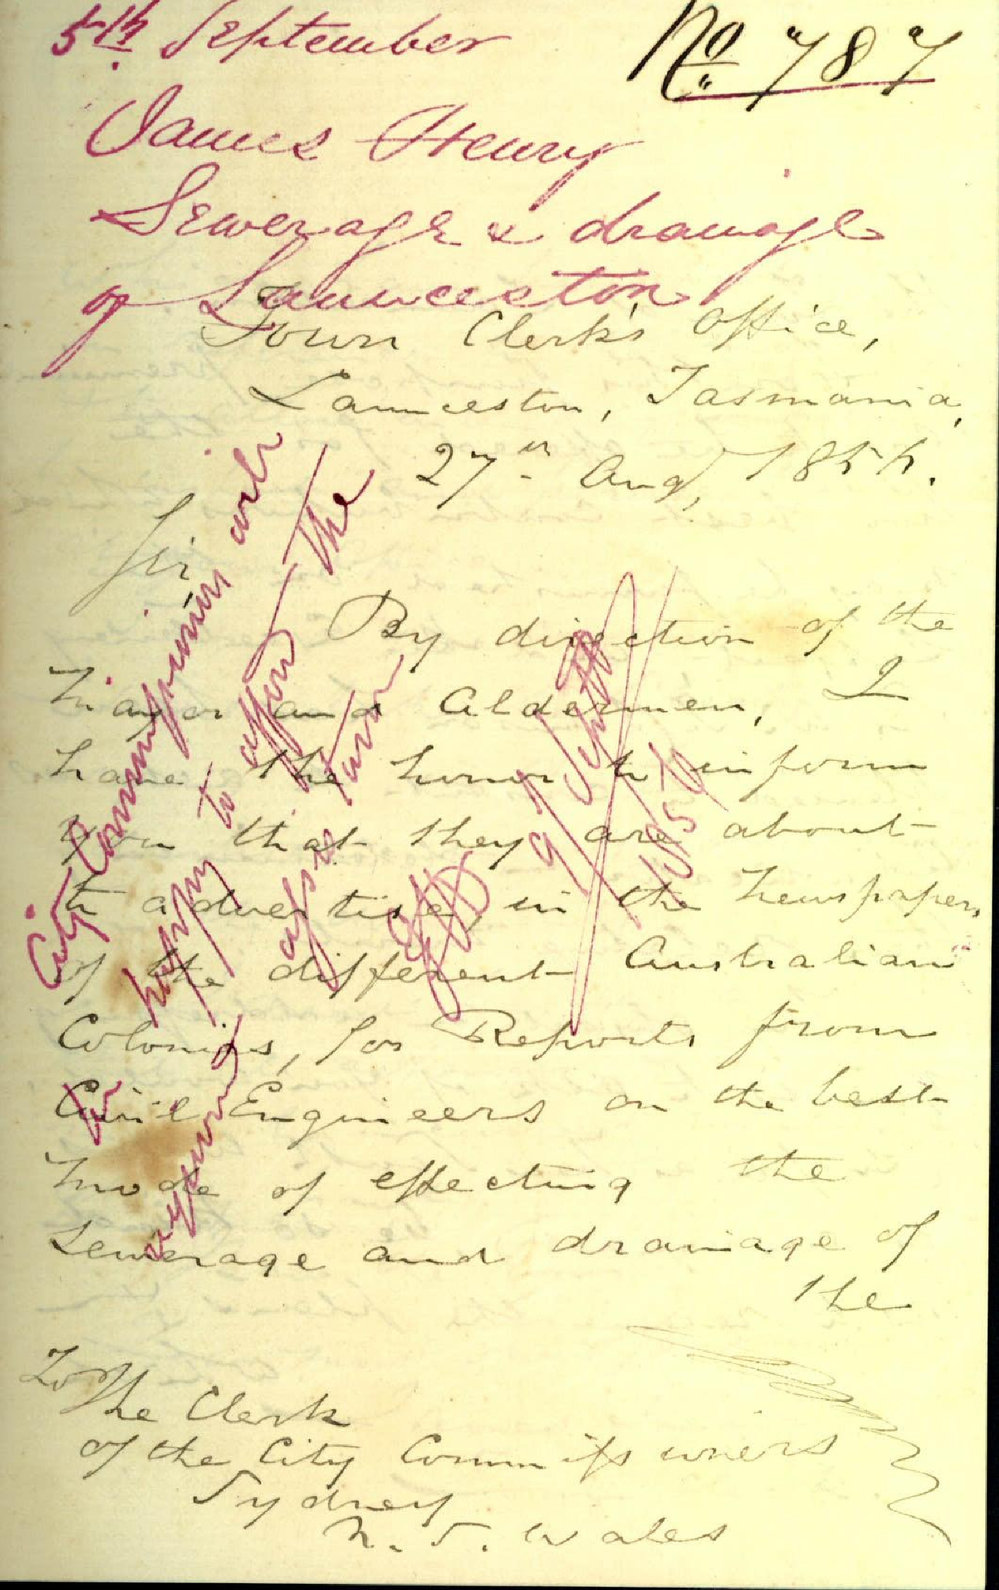 5th September
No. 787
James Henry
Sewerage & drainage
of Launceston
Town Clerk's Office,
Launceston, Tasmania,
27th Augt, 1856.
Sir,
By direction of the
Mayor and Aldermen, I
have the honor to inform
you that they are about
to advertise in the Newspapers
of the different Australian
Colonies, for Reports from
Civil Engineers on the best
mode of effecting the
sewerage and drainage of
the
To The Clerk
of the City Commissioners
Sydney
N. S. Wales
City Commissioners will
be happy to afford the
assist
9 Septr
1856